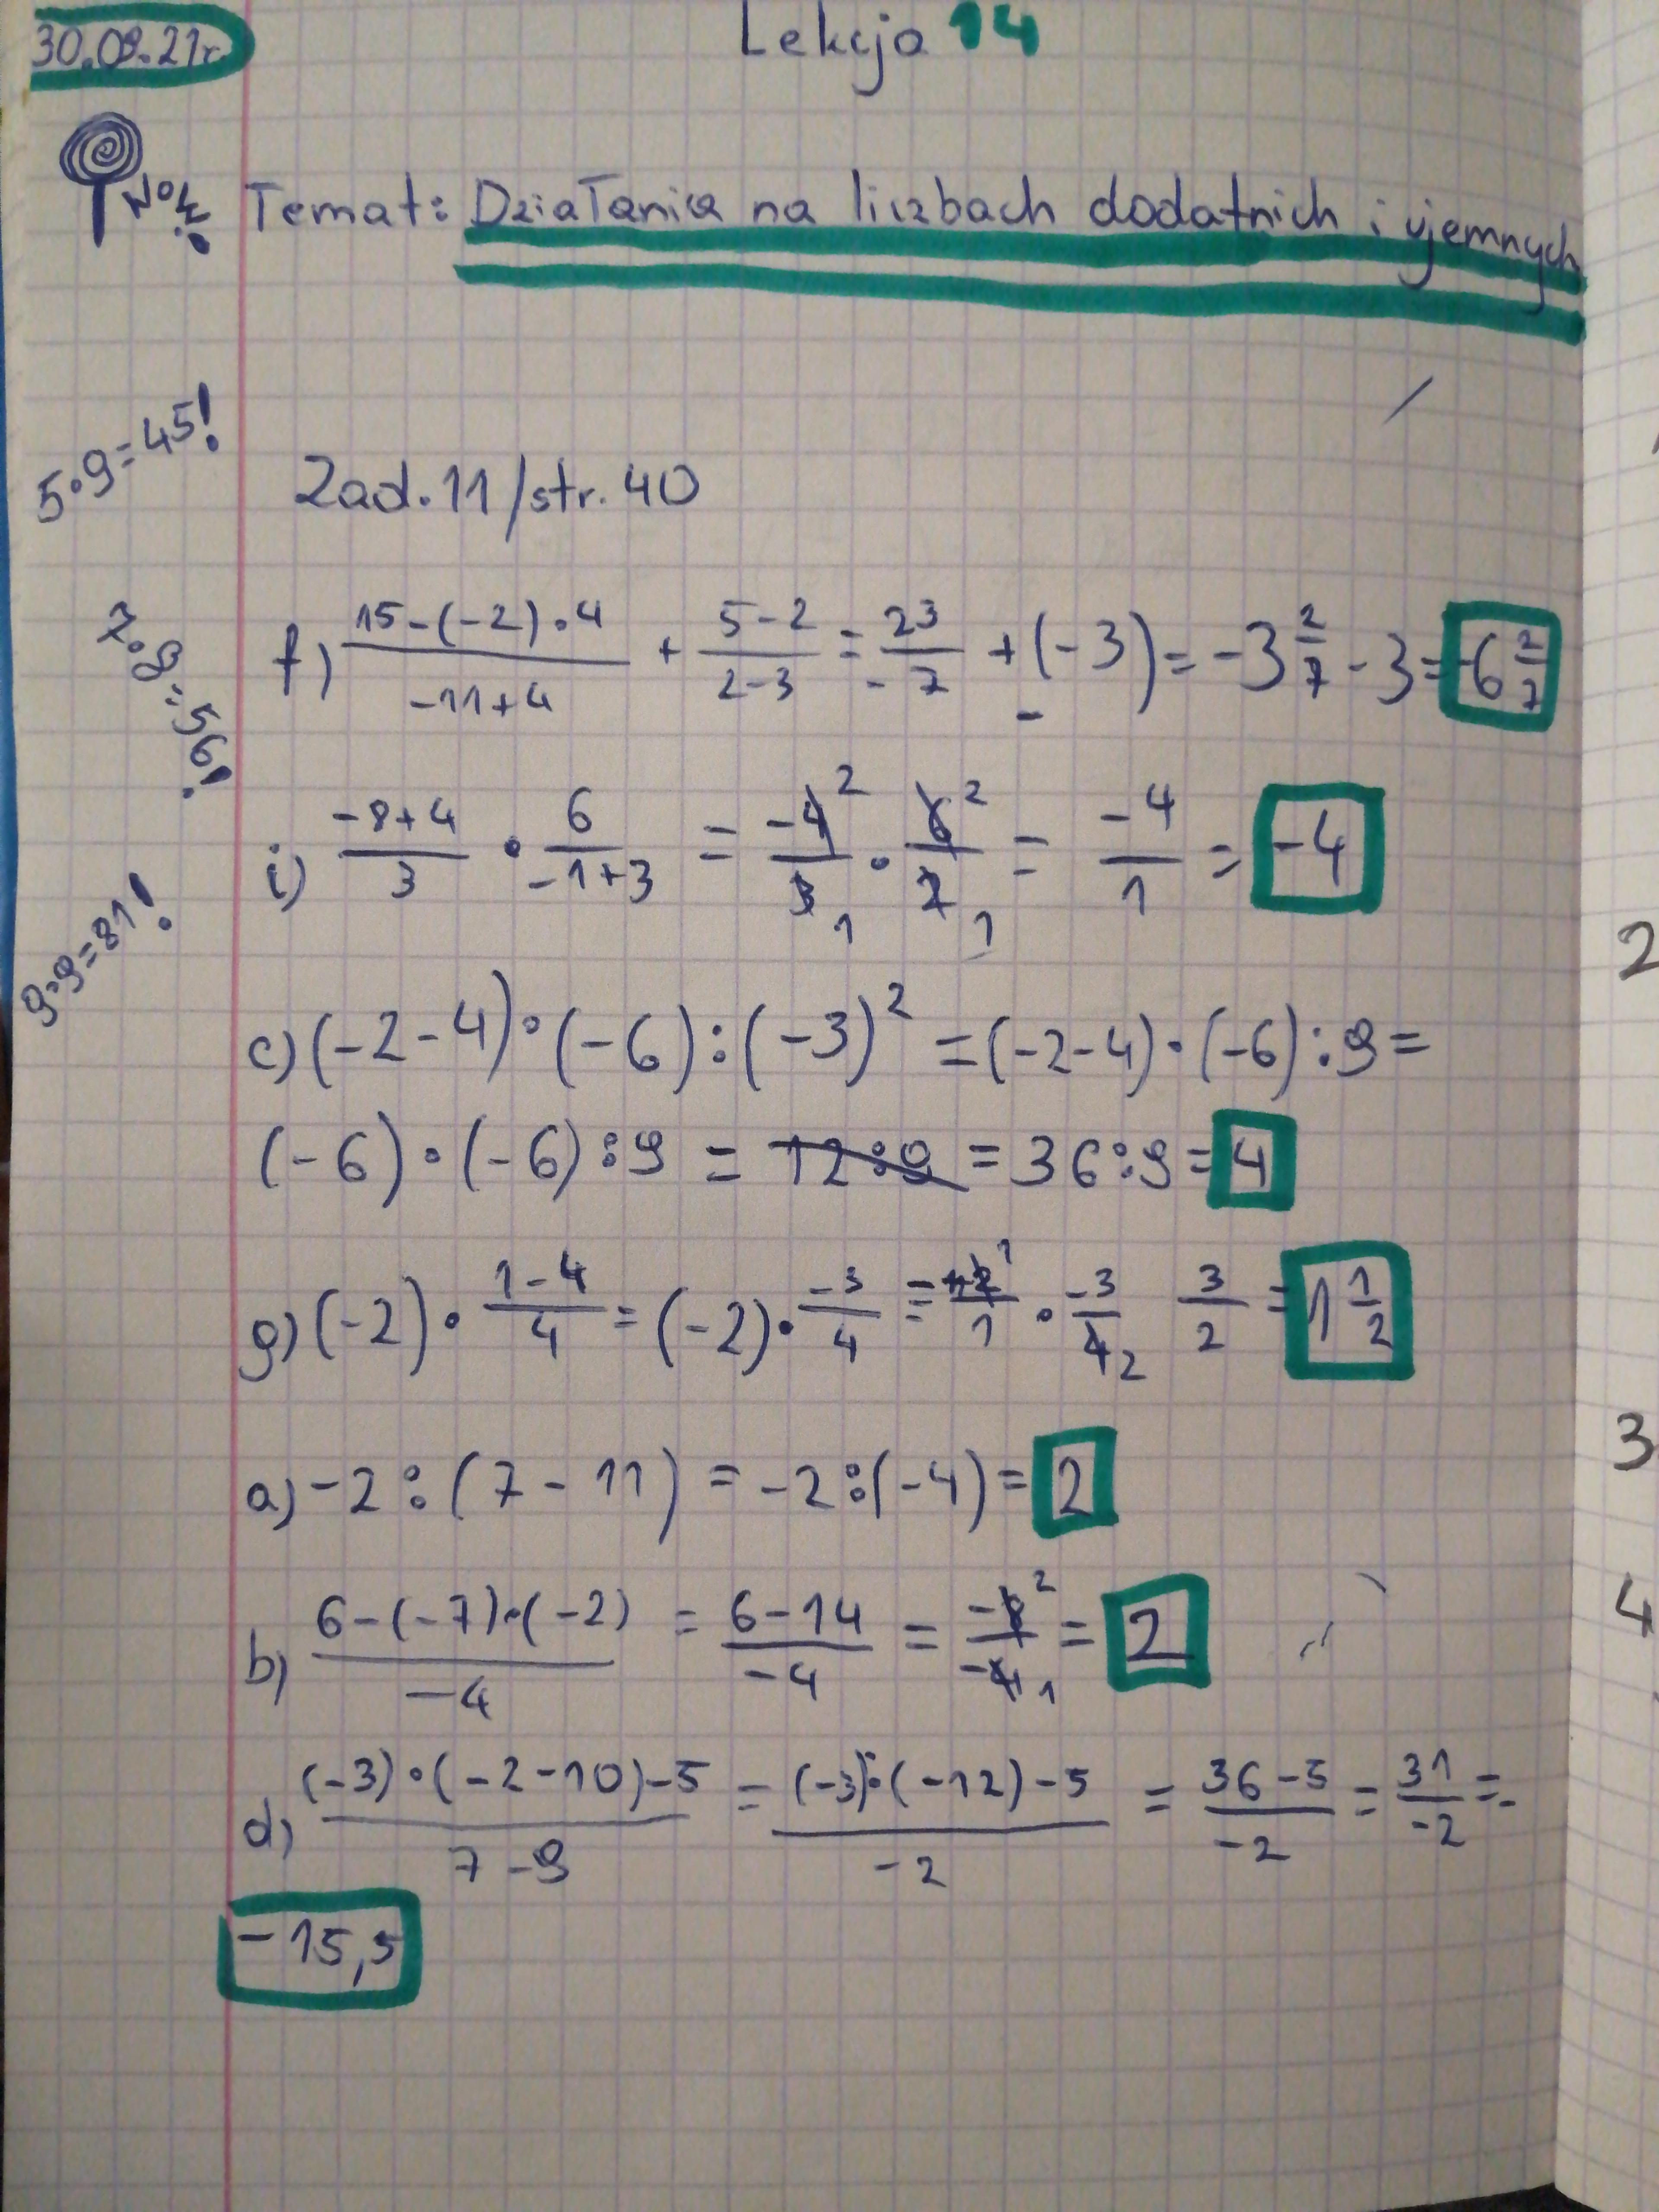 30.09.21r.
Lekcja 14
Temat: Działania na liczbach dodatnich i ujemnych
5·9=45!
7·8=56!
9·9=81!
Zad.11/str.40
f) (15-(-2)·4)/(-11+4) + (5-2)/(2-3) = 23/-7 + (-3) = -3 2/7 - 3 = -6 2/7
i) (-8+4)/3 · 6/(-1+3) = -4/3 · 6/2 = -4/1 = -4
c) (-2-4)·(-6):(-3)² = (-2-4)·(-6):9=
(-6)·(-6):9 = 12:9 = 36:9 = 4
g) (-2)·(1-4)/4 = (-2)·-3/4 = -2/1 · -3/4 3/2 = 1 1/2
a) -2:(7-11) = -2:(-4) = 2
b) (6-(-7)·(-2))/-4 = (6-14)/-4 = -8/-4 = 2
d) ((-3)·(-2-10)-5)/(7-9) = ((-3)·(-12)-5)/-2 = (36-5)/-2 = 31/-2 =
-15,5
2
3
4